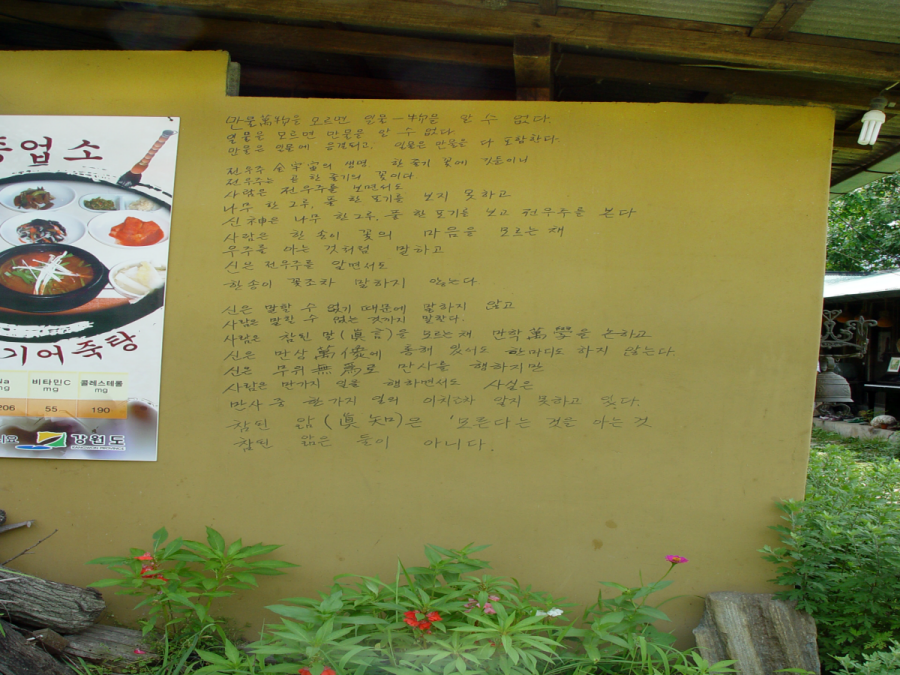 만물萬物을 모르면 일물一物을 알 수 없다.
일물을 모르면 만물을 알 수 없다.
만물은 일물에 응결되고, 일물은 만물을 다 포함한다.
전우주 全宇宙의 생명 한 줄기 꽃에 깃듦이니
전우주는 곧 한 줄기의 꽃이다.
사람은 전우주를 보면서도
나무 한 그루, 풀 한 포기를 보지 못하고
신神은 나무 한 그루, 풀 한 포기를 보고 전우주를 본다
사람은 한 송이 꽃의 마음을 모르는 채
우주를 아는 것처럼 말하고
신은 전우주를 알면서도
한 송이 꽃조차 말하지 않는다.
신은 말할 수 없기 때문에 말하지 않고
사람은 말할 수 없는 것까지 말한다.
사람은 참된 말(眞言)을 모르는 채 만학萬學을 논하고
신은 만상萬像에 통해 있어도 한마디도 하지 않는다.
신은 무위無爲로 만사를 행하지만
사람은 만가지 일을 행하면서도 사실은
만사 중 한 가지 일의 이치조차 알지 못하고 있다.
참된 앎(眞知)은 '모른다는 것을 아는 것
참된 앎은 둘이 아니다.
업소
기어죽탕
비타민C 콜레스테롤
mg mg
206 55 190
강원도